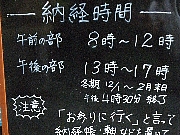 納経時間
午前の部 8時〜12時
午後の部 13時〜17時
冬期 12/1〜2月末日
午後4時30分終了
注意
「お参りに行く」と言って
納経帳・軸などを置って